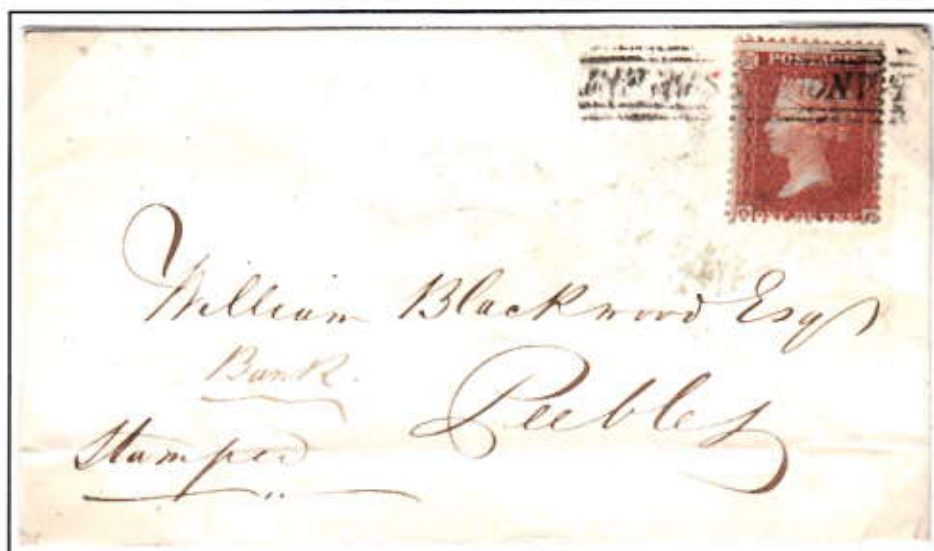 POSTAGE
William Blackwood Esqr
Bank
Peebles
Stamped